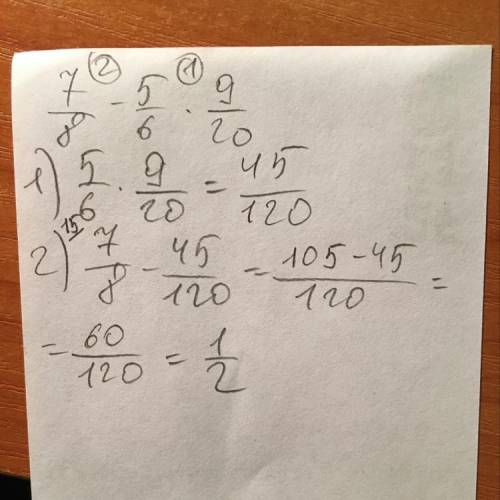 7/8 ② - 5/6 ① · 9/20
1) 5/6 · 9/20 = 45/120
2) 15 7/8 - 45/120 = 105-45/120 =
= 60/120 = 1/2